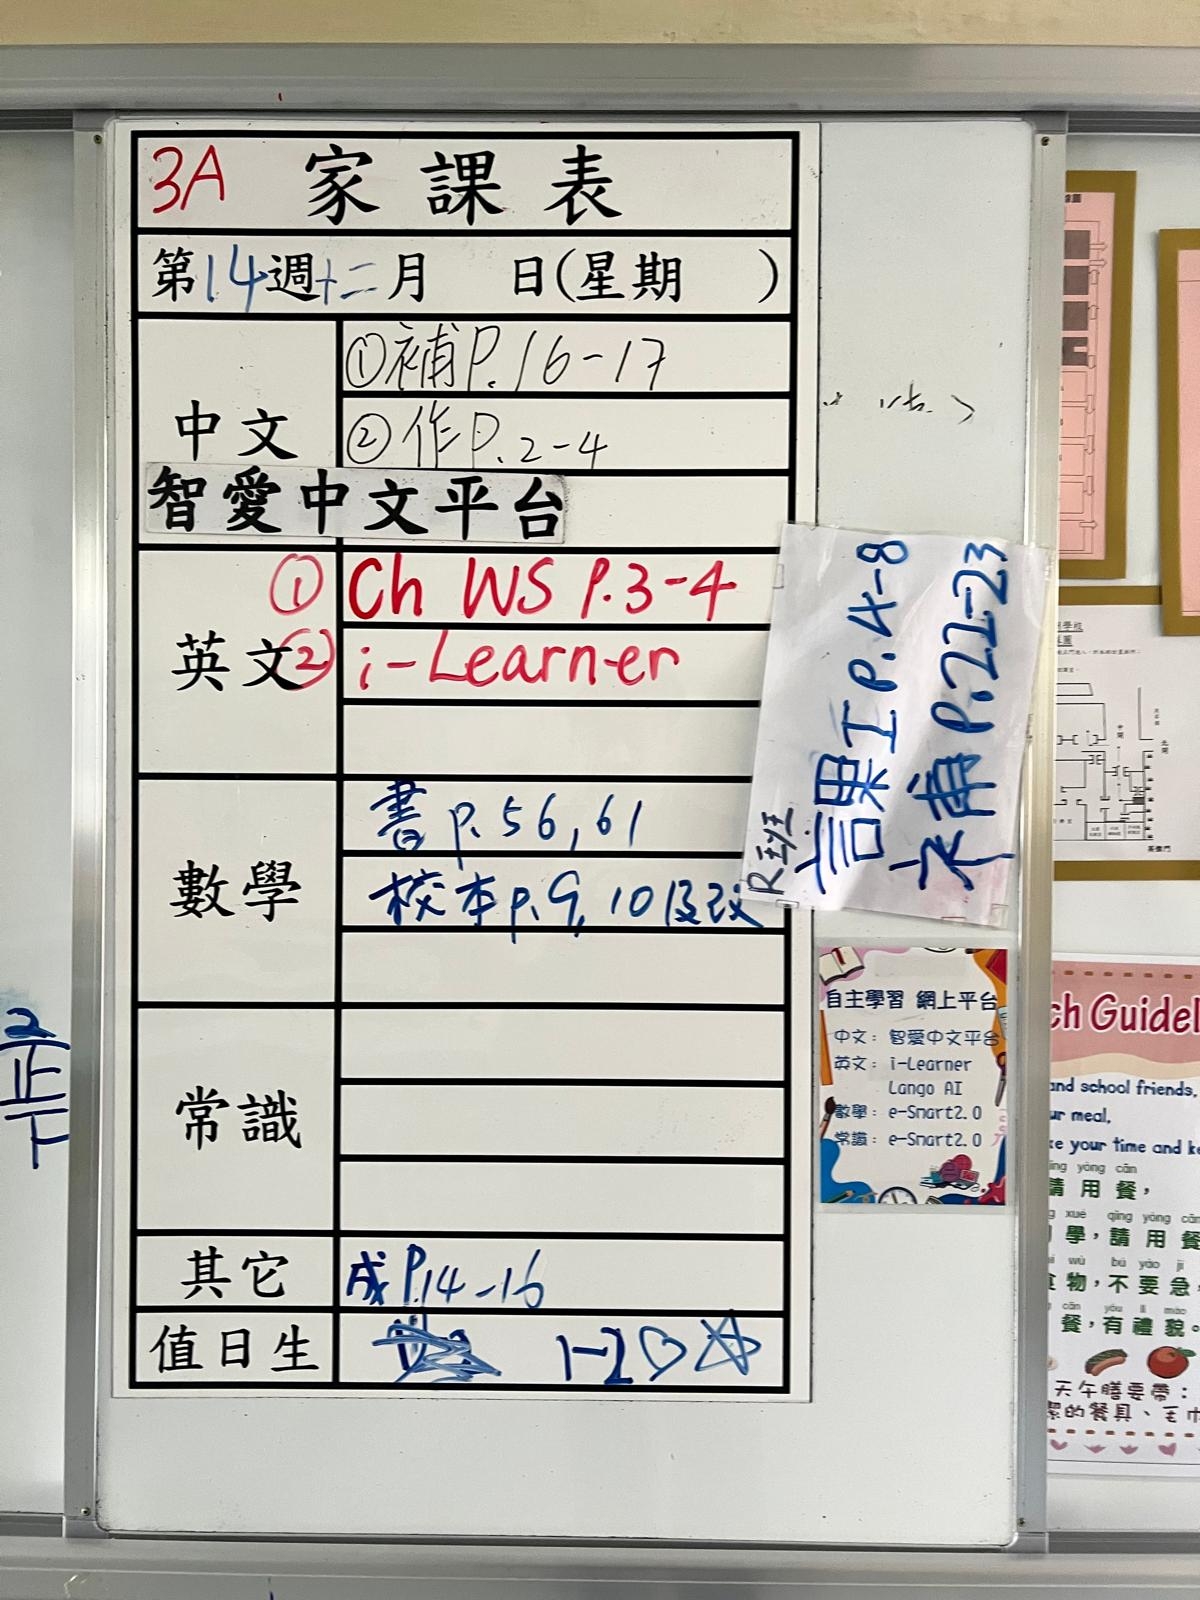 3A 家課表
第14週十二月 日(星期 )
中文
①補P.16-17
②作P.2-4
智愛中文平台
英文
① Ch WS P.3-4
② i-Learner
數學
書 p.56,61
校本p.9,10及改
常識
其它
成P.14-16
值日生
1-2♡☆
R班
課工P.4-8
補P.21-23
自主學習 網上平台
中文: 智愛中文平台
英文: i-Learner
Lango AI
數學: e-Smart2.0
常識: e-Smart2.0
ch Guidel
and school friends,
ur meal,
ke your time and ke
yòng cān
請用餐,
xué qǐng yòng cān
學,請用餐
wù bú yào jí
食物,不要急,
cān yǒu lǐ mào
餐,有禮貌。
天午膳要帶:
潔的餐具、毛巾
2
正
下